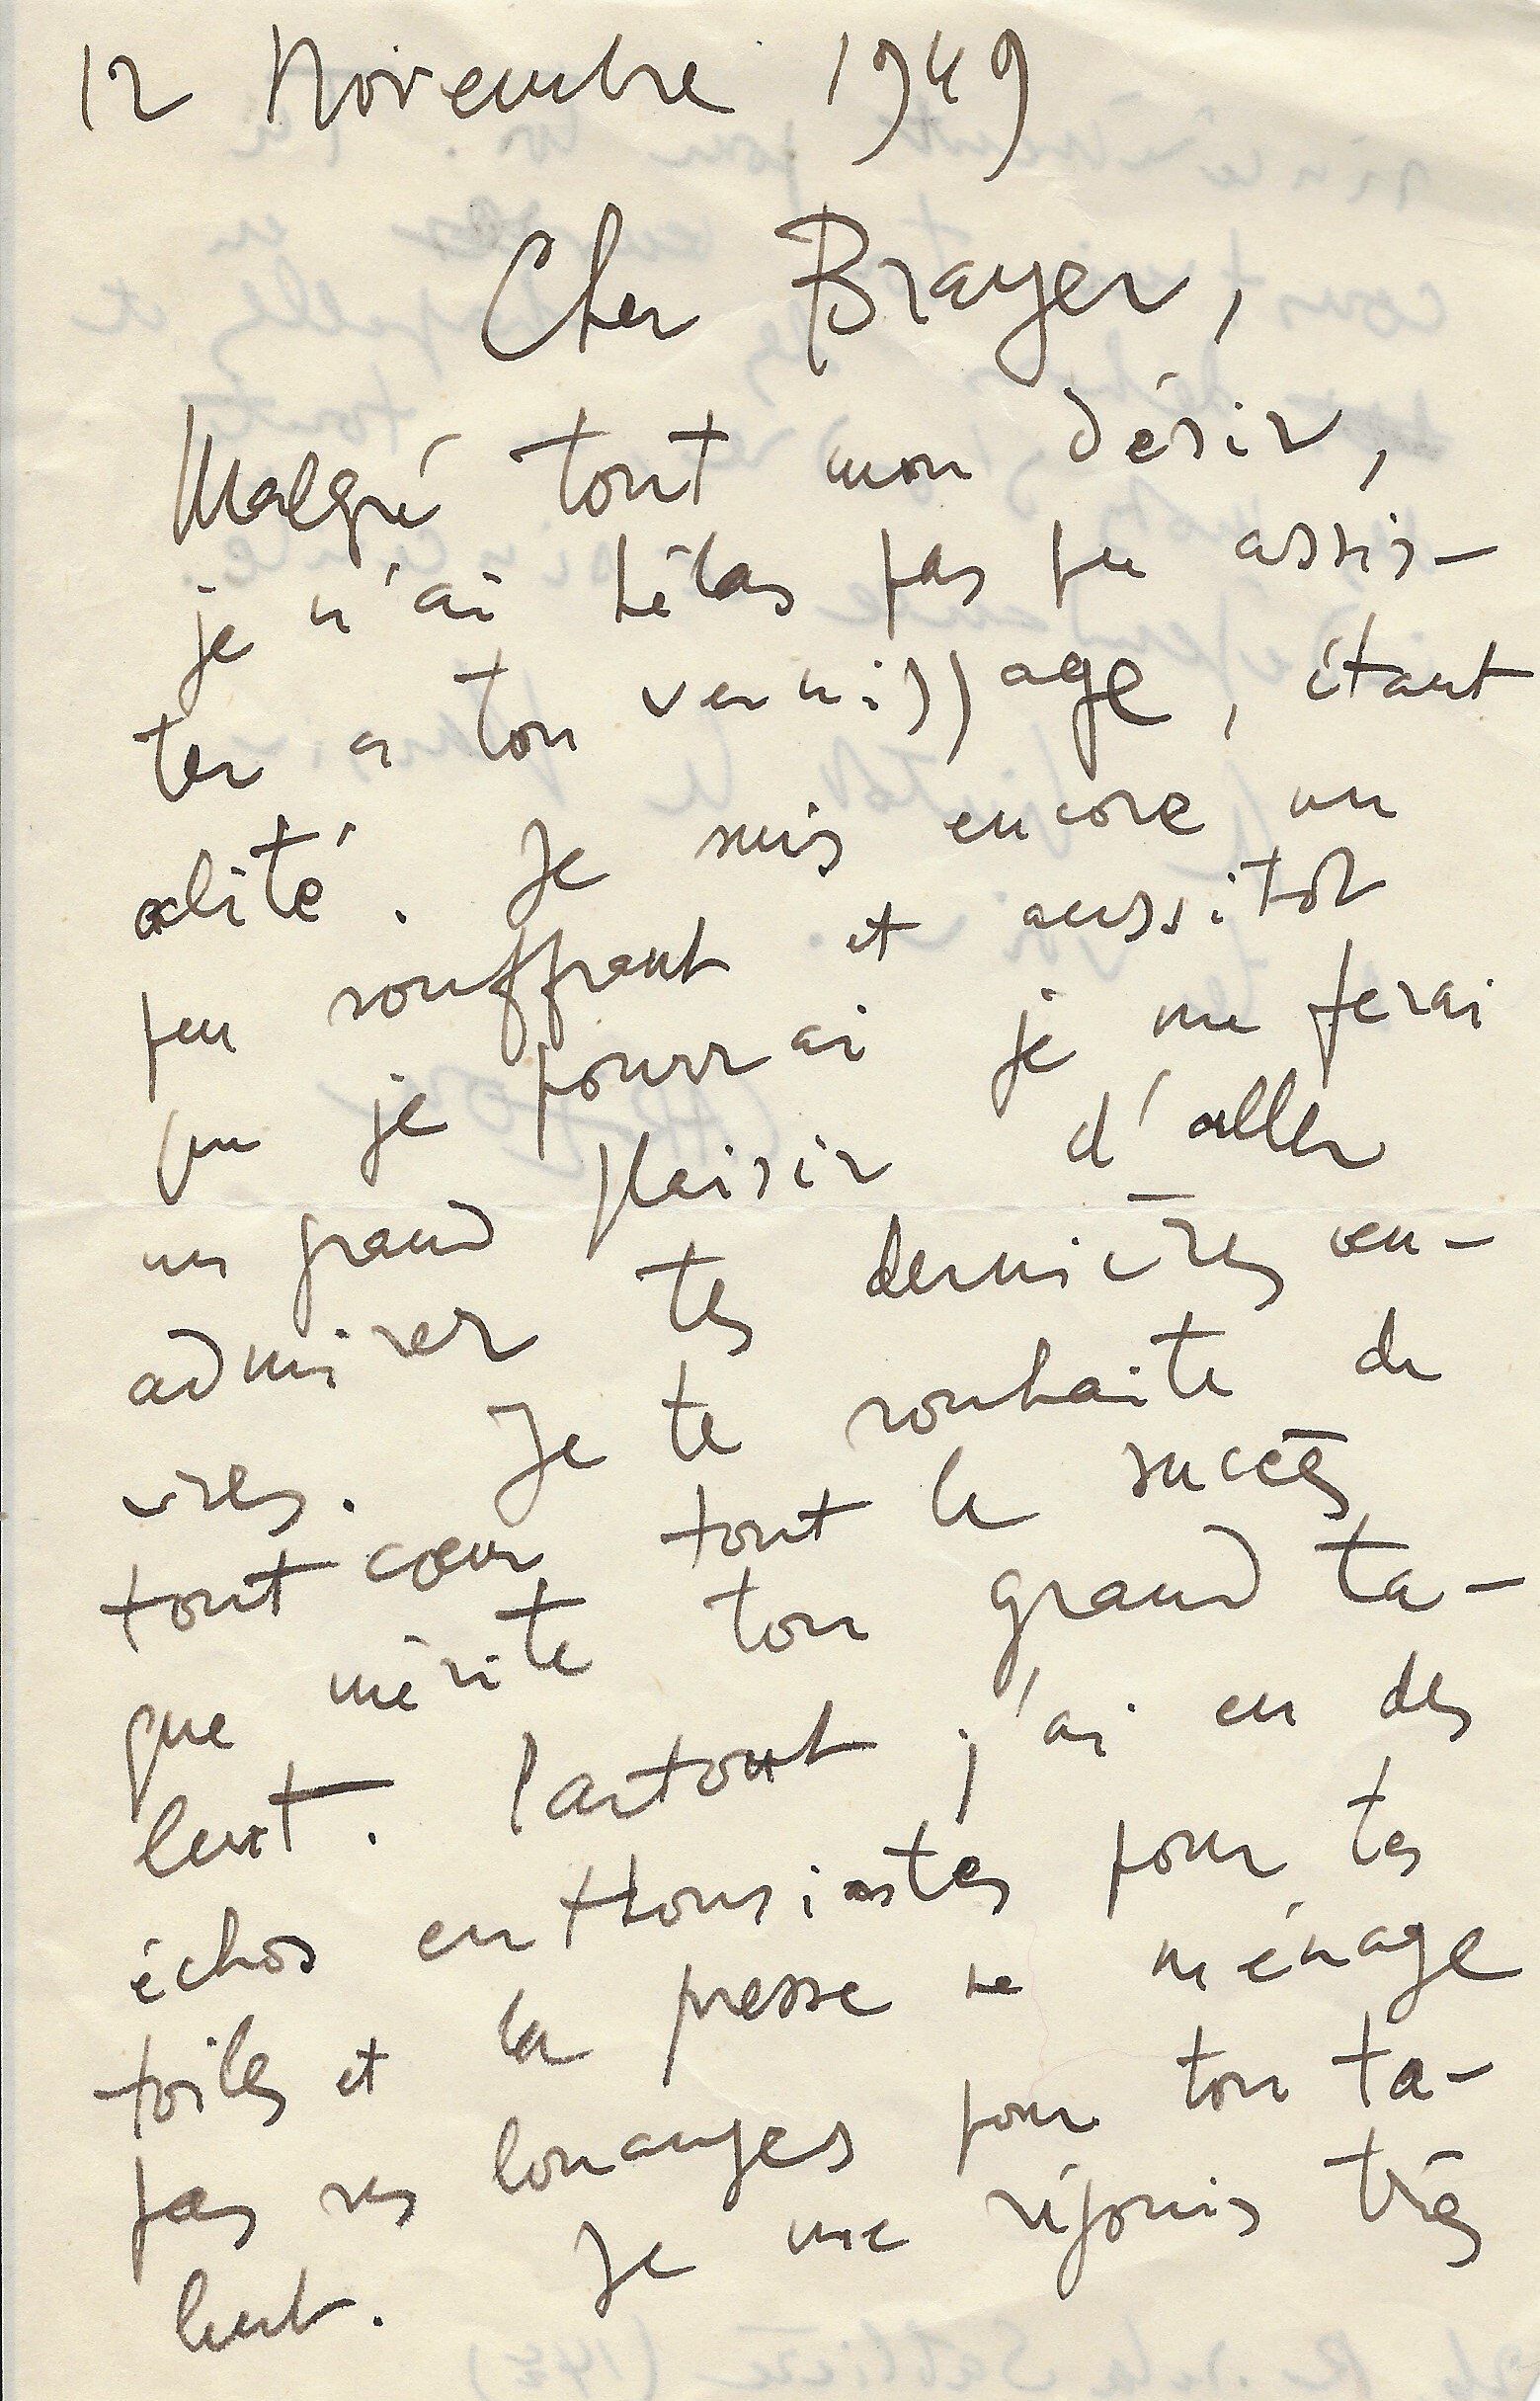 12 Novembre 1949
Cher Brayer,
Malgré tout mon désir,
je n'ai hélas pas pu assis-
ter à ton vernissage, étant
alité. Je suis encore un
peu souffrant et aussitôt
que je pourrai je me ferai
un grand plaisir d'aller
admirer tes dernières œu-
vres. Je te souhaite de
tout cœur tout le succès
que mérite ton grand ta-
lent. Partout j'ai eu des
échos enthousiastes pour tes
toiles et la presse ne ménage
pas ses louanges pour ton ta-
lent. Je me réjouis très